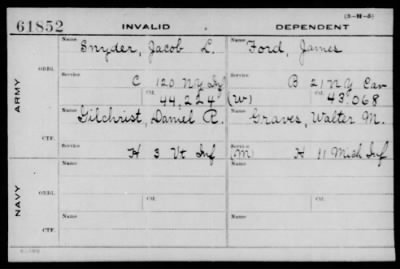 61852 INVALID DEPENDENT (3-H-5)
Name Snyder, Jacob L. Name Ford, James
ARMY
ORIG.
Service C 120 N.Y. Inf Service B 21 N.Y. Cav
Ctf. 44,224 (W) Ctf. 43.068
Name Gilchrist, Daniel R. Name Graves, Walter M.
CTF.
Service H 3 Vt Inf (M) Service H 11 Mich Inf
NAVY
Name Name
ORIG.
Service Ctf. Service Ctf.
Name Name
CTF.
Service Service